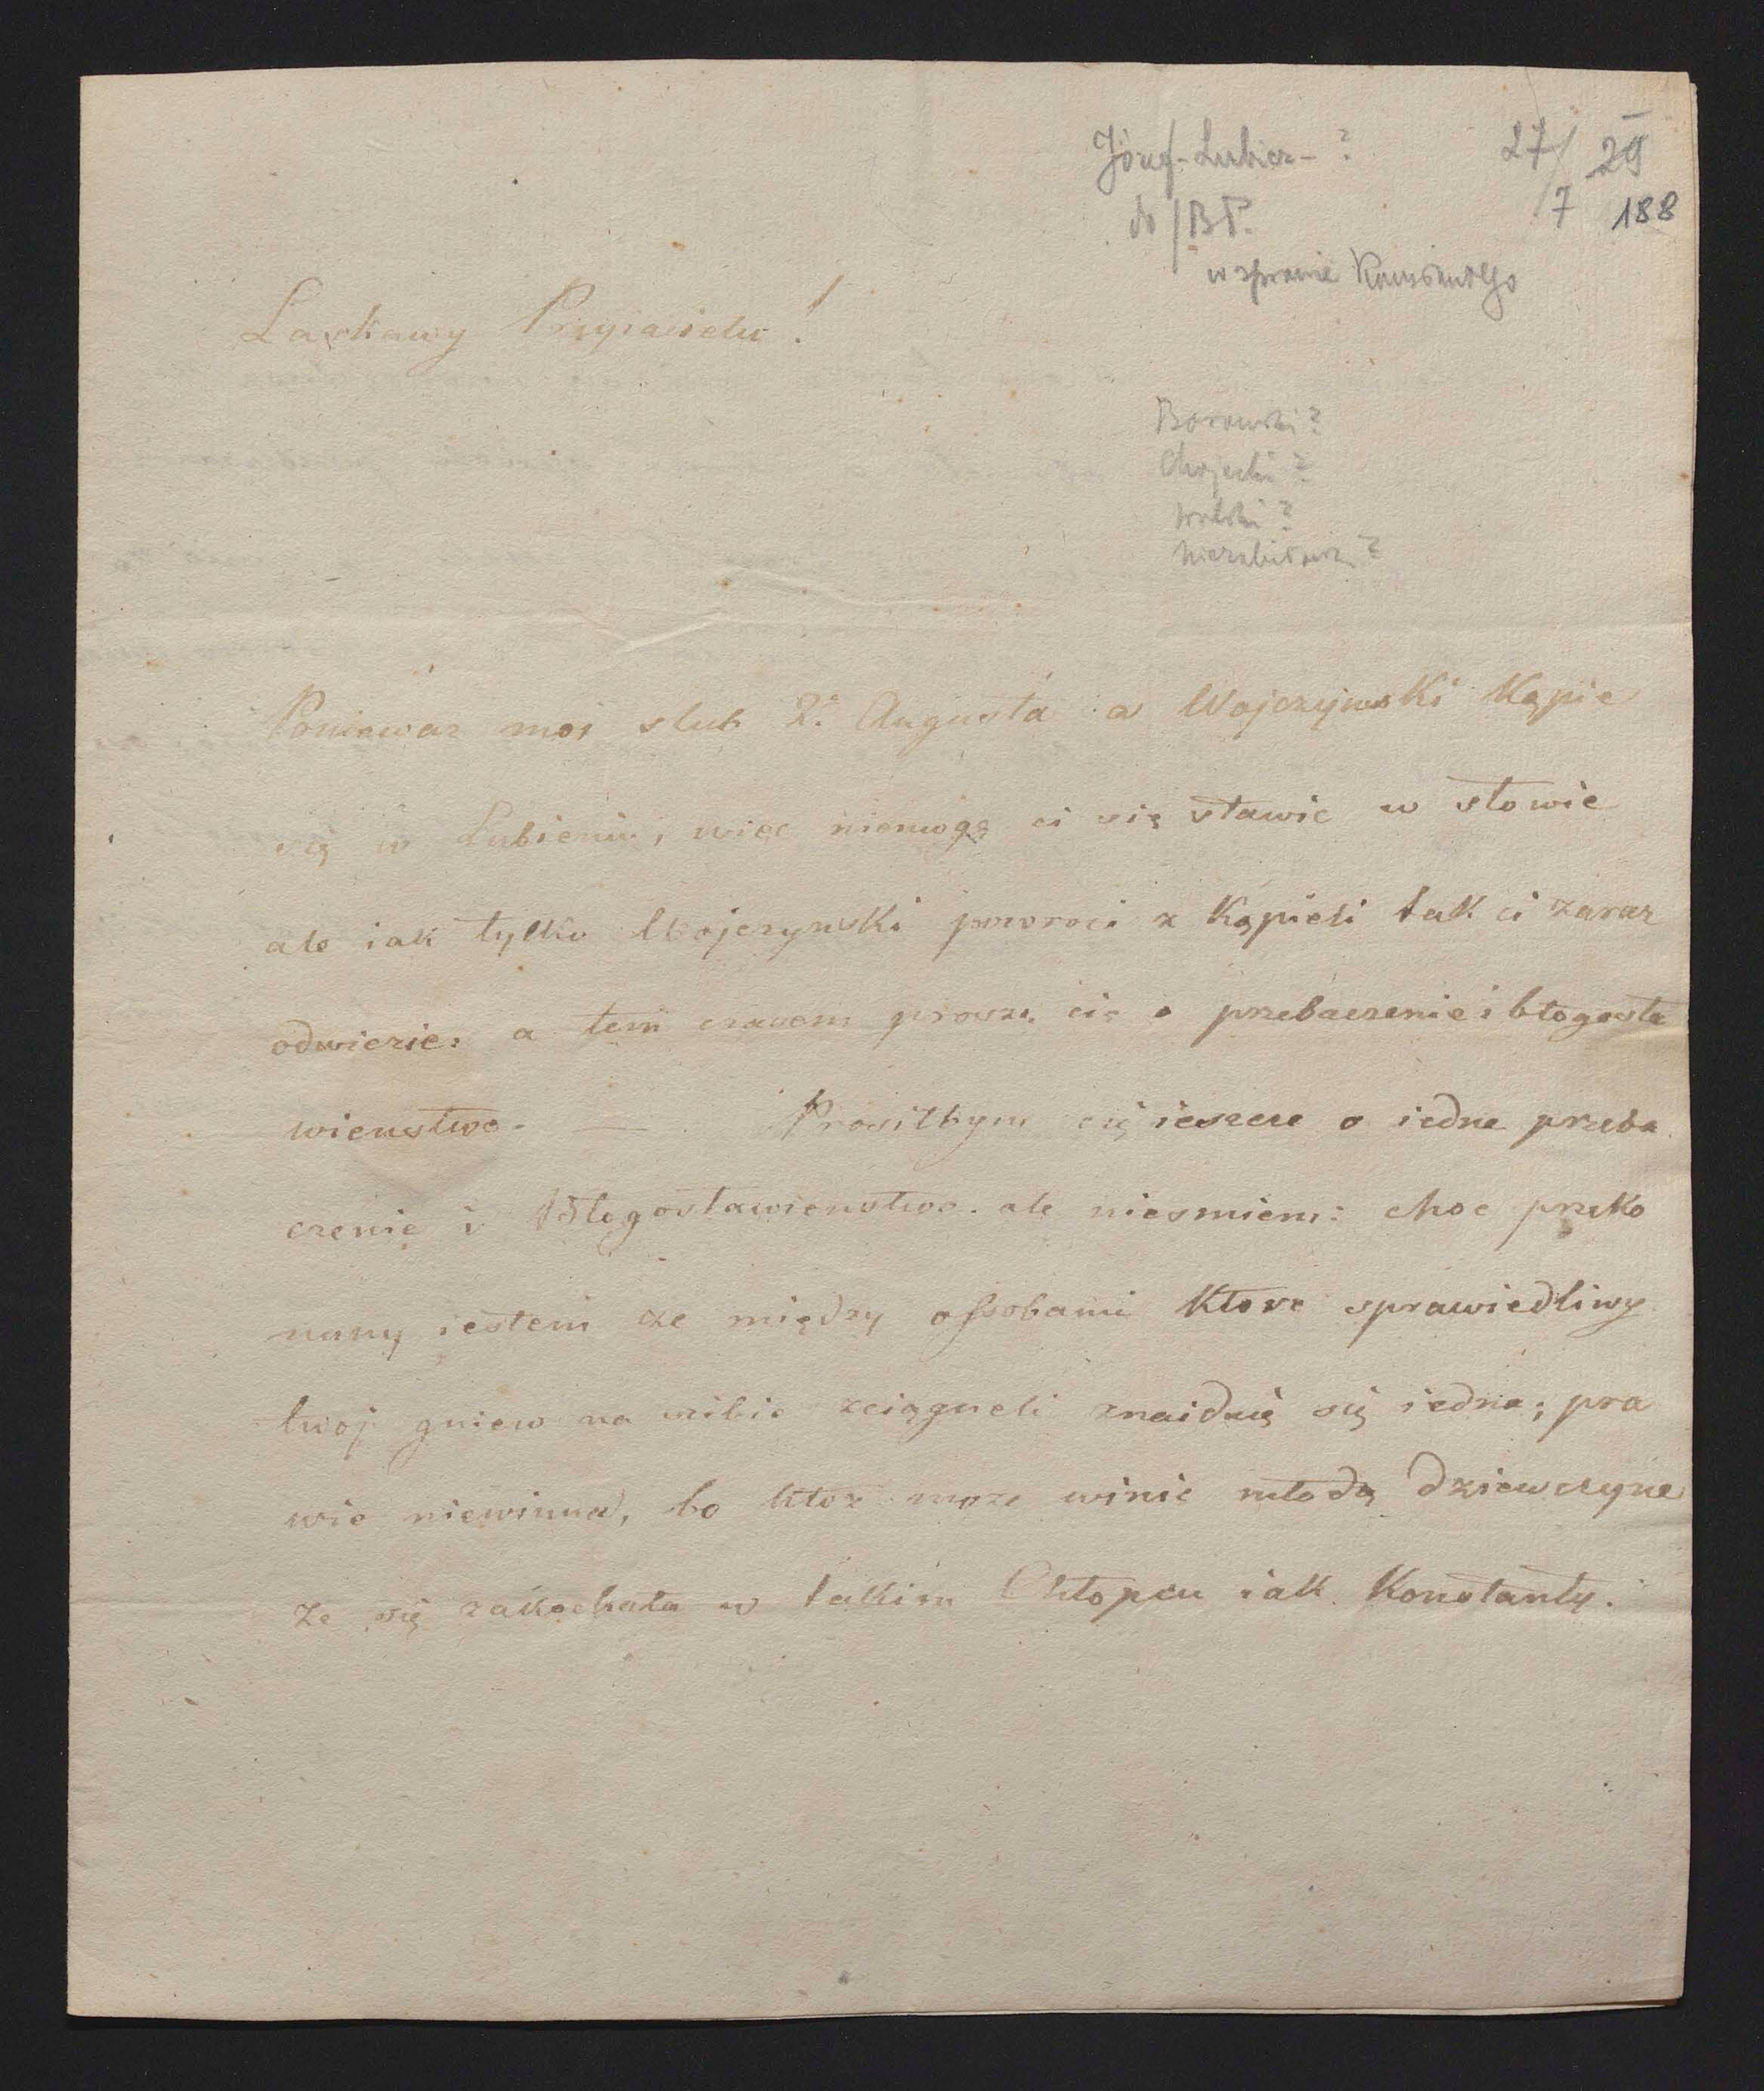 Józef Lubicz - ? 27/7 29
do BP. 188
w sprawie
Laskawy Przyiacielu!
Borowski?
Chojecki?
Wolski?
Niezabitowski?
Poniewaz moi slub 2. Augusta a Wojczynski Kąpie
się w Lubieniu, więc niemogę ci się stawic w słowie
ale iak tylko Wojczynski powroci z Kąpieli tak ci zaraz
odwiezie: a tem czasem prosze cię o przebaczenie i błogosła
wienstwo. — Prosiłbym cię ieszcze o iedne przeba
czenie i Błogosławienstwo. ale niesmiem: choc przeko
nany iestem ze między ossobami Ktore sprawiedliwy
twoj gniew na siebie zciągneli znaiduię się iedna; pra
wie niewinna, bo ktoz moze winic młodą dziewczyne
ze się zakochała w takim Chłopcu iak Konstanty.